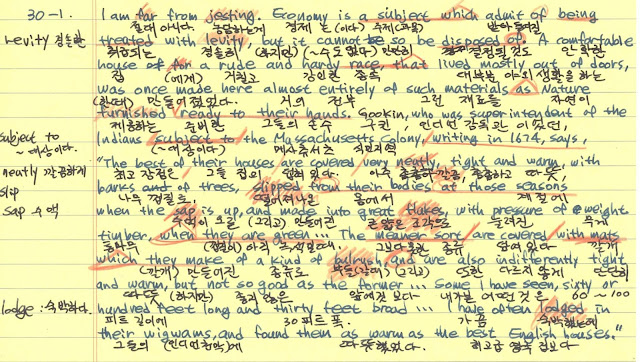 30-1. I am far from jesting. Economy is a subject which admit of being
절대 아니다. 농담하는게 경제 는 (이다) 주제(과목) 받아들여질
Levity 경솔한 treated with levity, but it cannot be so be disposed of. A comfortable
취급되는 경솔히 (하지만) (~수도 없다)
house of for a rude and hardy race, that lived mostly out of doors,
집 (에게) 거칠고 강인한 종족 대부분 야외 생활을 하는
was once made here almost entirely of such materials as Nature
(한때) 만들어졌었다. 거의 전부 그런 재료들 자연이
furnished ready to their hands. Gookin, who was superintendent of the
제공하는 준비한 그들의 손수 구킨 인디언 감독관 이었던,
subject to Indians subject to the Massachusetts Colony, writing in 1674, says,
~대상이다. (~대상이다) 메사추세츠 식민지역
"The best of their houses are covered very neatly, tight and warm, with
neatly 깔끔하게 최고 장점은 그들 집의 아주
slip barks and of trees, slipped from their bodies at those seasons
나무 껍질로. 몸에서 계절에
sap 수액 when the sap is up, and made into great flakes, with pressure of weight
수액이 오를 (그리고) 만들어진 큰 얇은 조각으로 눌려진 무게
timber, when they are green... The meaner sort are covered with mats
그보다 못한 종류 덮여 있다 깔개
which they make of a kind of bulrush, and are also indifferently tight
(깔개) 만들어진 종류로 (그리고) 또한 다르지 않게 단단히
and warm, but not so good as the former... Some I have seen, sixty or
따뜻 (하지만) 좋지 않은 앞에것 보다 내가 본 어떤것은 60~100
lodge: 숙박하다. hundred feet long and thirty feet broad... I have often lodged in
피트 길이에 30 피트 폭. 가끔 숙박했는데
their wigwams, and found them as warm as the best English houses."
그들의 (인디언천막)에 따뜻했었다. 최고급 영국 집보다."